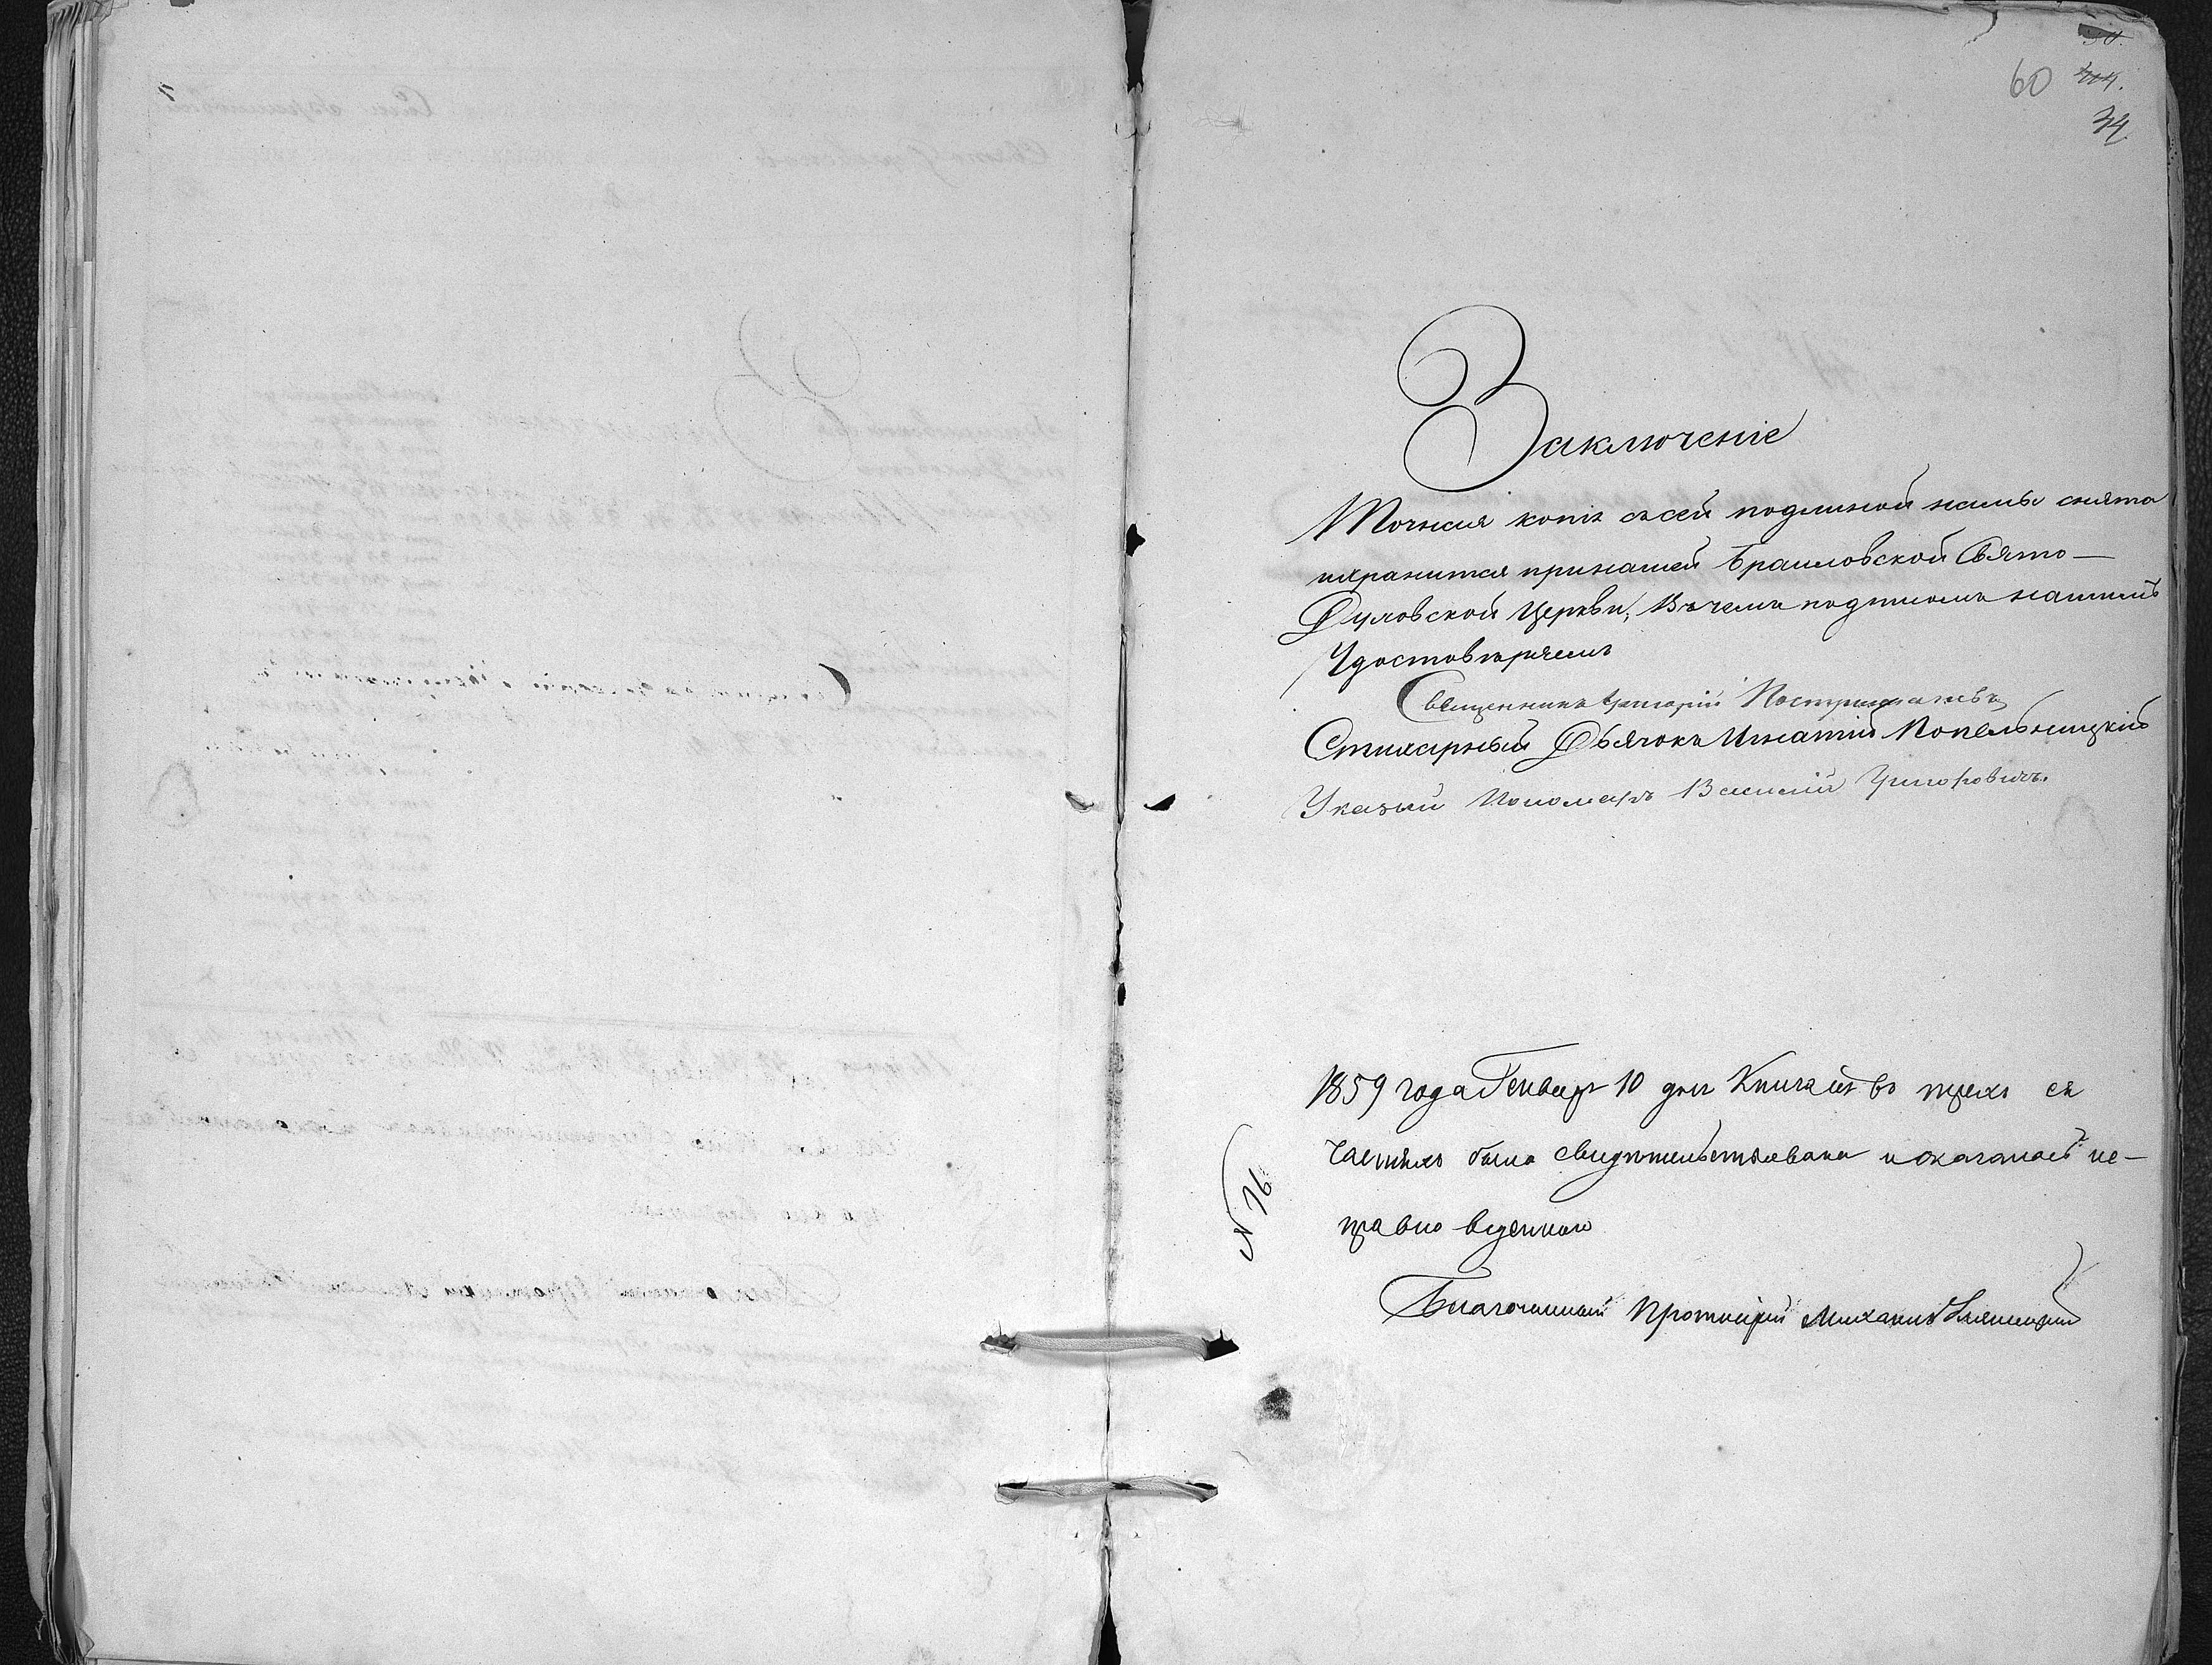 60
34
Заключеніе
Точная копія съсей подлиной нами снята
ихранится принашей Браиловской Свято–
Духовской Церкви, Въчемъ подписомъ нашимъ
Удостовѣряемъ
Священникъ Григорій
Стихарный Дьячокъ Игнатій Копельницкій
Указный Пономарь Василій Григоровичъ.
1859 года Генваря 10 дня Книга сія въ трехъ ея
частяхъ была свидѣтельствована иоказалась ис–
правно веденною
№ 16
Благочинный Протоіерей Михаилъ